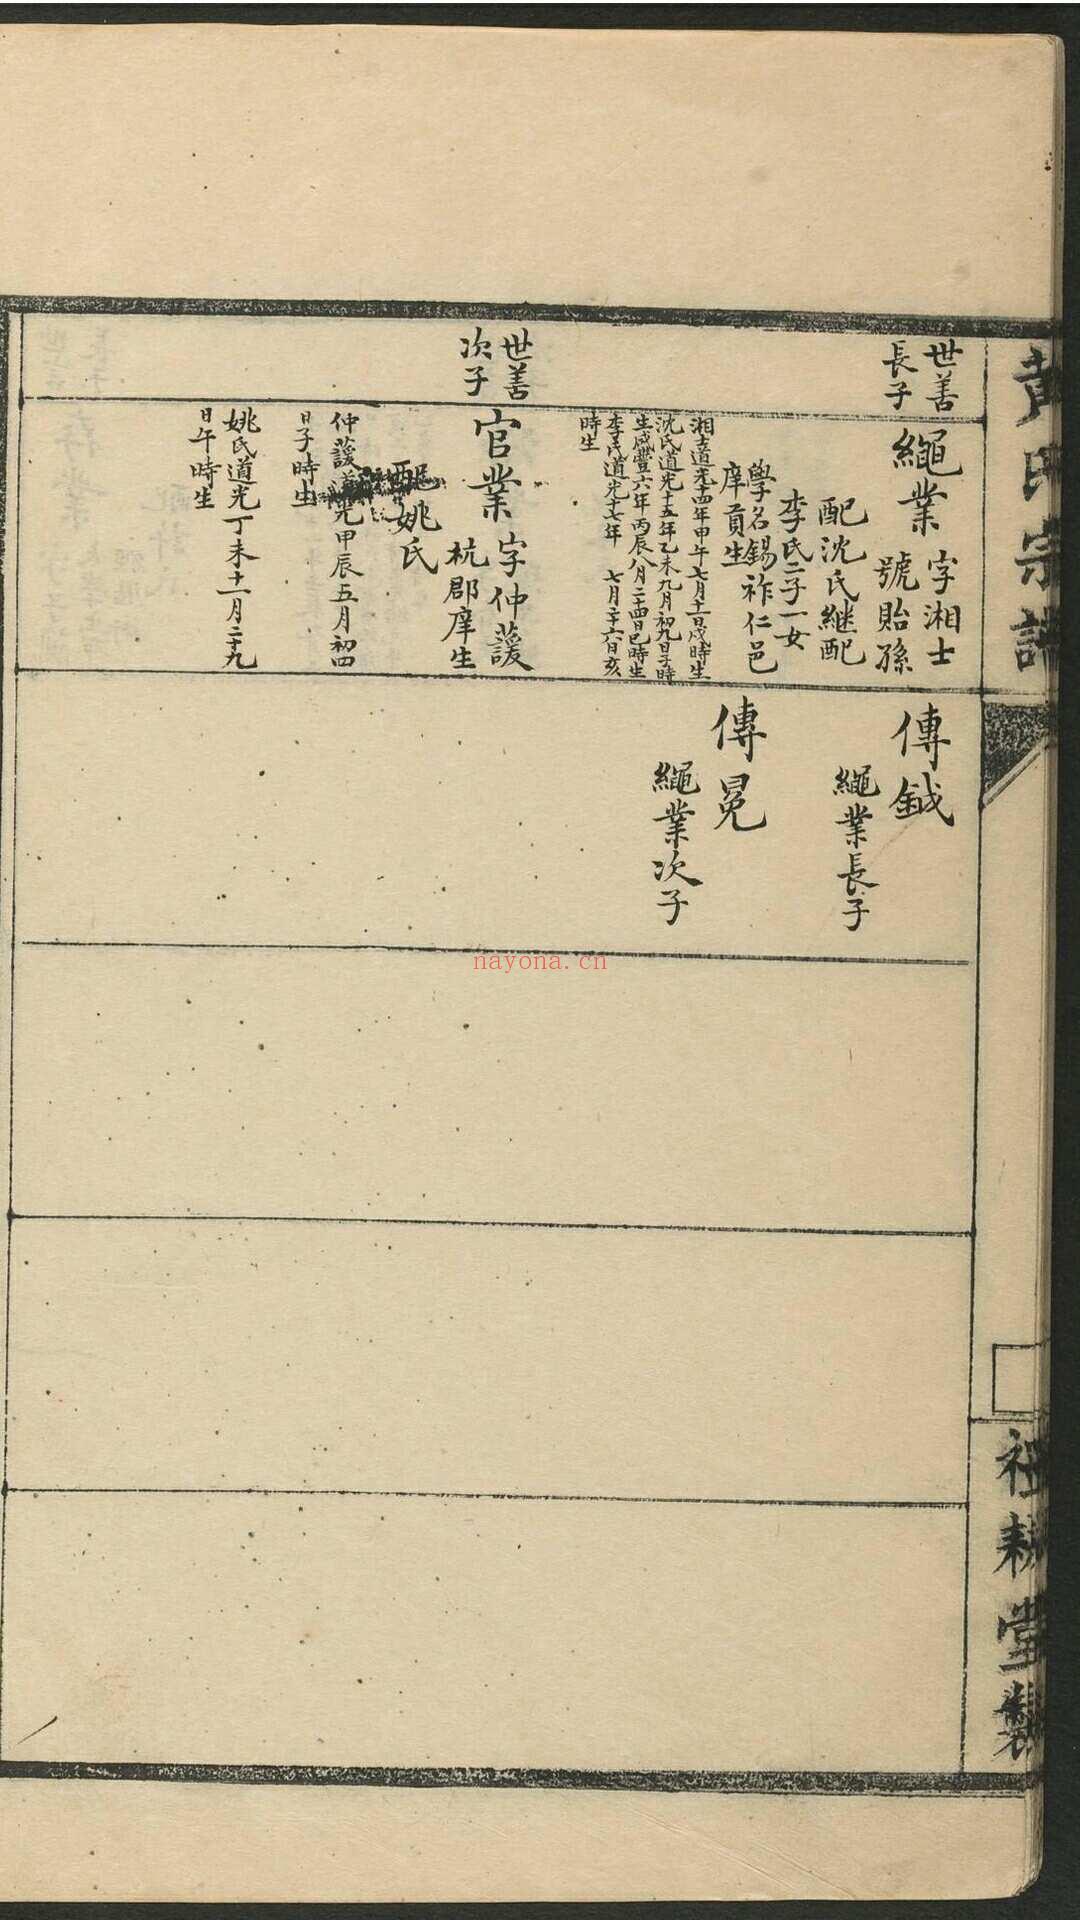 黄氏宗譜
世善
長子
繩業
字湘士
號貽孫
配沈氏継配
李氏二子一女
學名錫祚仁邑
庠貢生
湘士道光十四年甲午七月十一日戌時生
沈氏道光十五年乙未九月初九日子時
生咸豐六年丙辰八月二十四日巳時生
李氏道光十七年 七月二十六日亥
時生
世善
次子
官業
字仲蕿
杭郡庠生
配姚氏
仲蕿道光甲辰五月初四
日子時生
姚氏道光丁未十一月二十九
日午時生
傳鉞
繩業長子
傳冕
繩業次子
nayona.cn
祖耕堂製